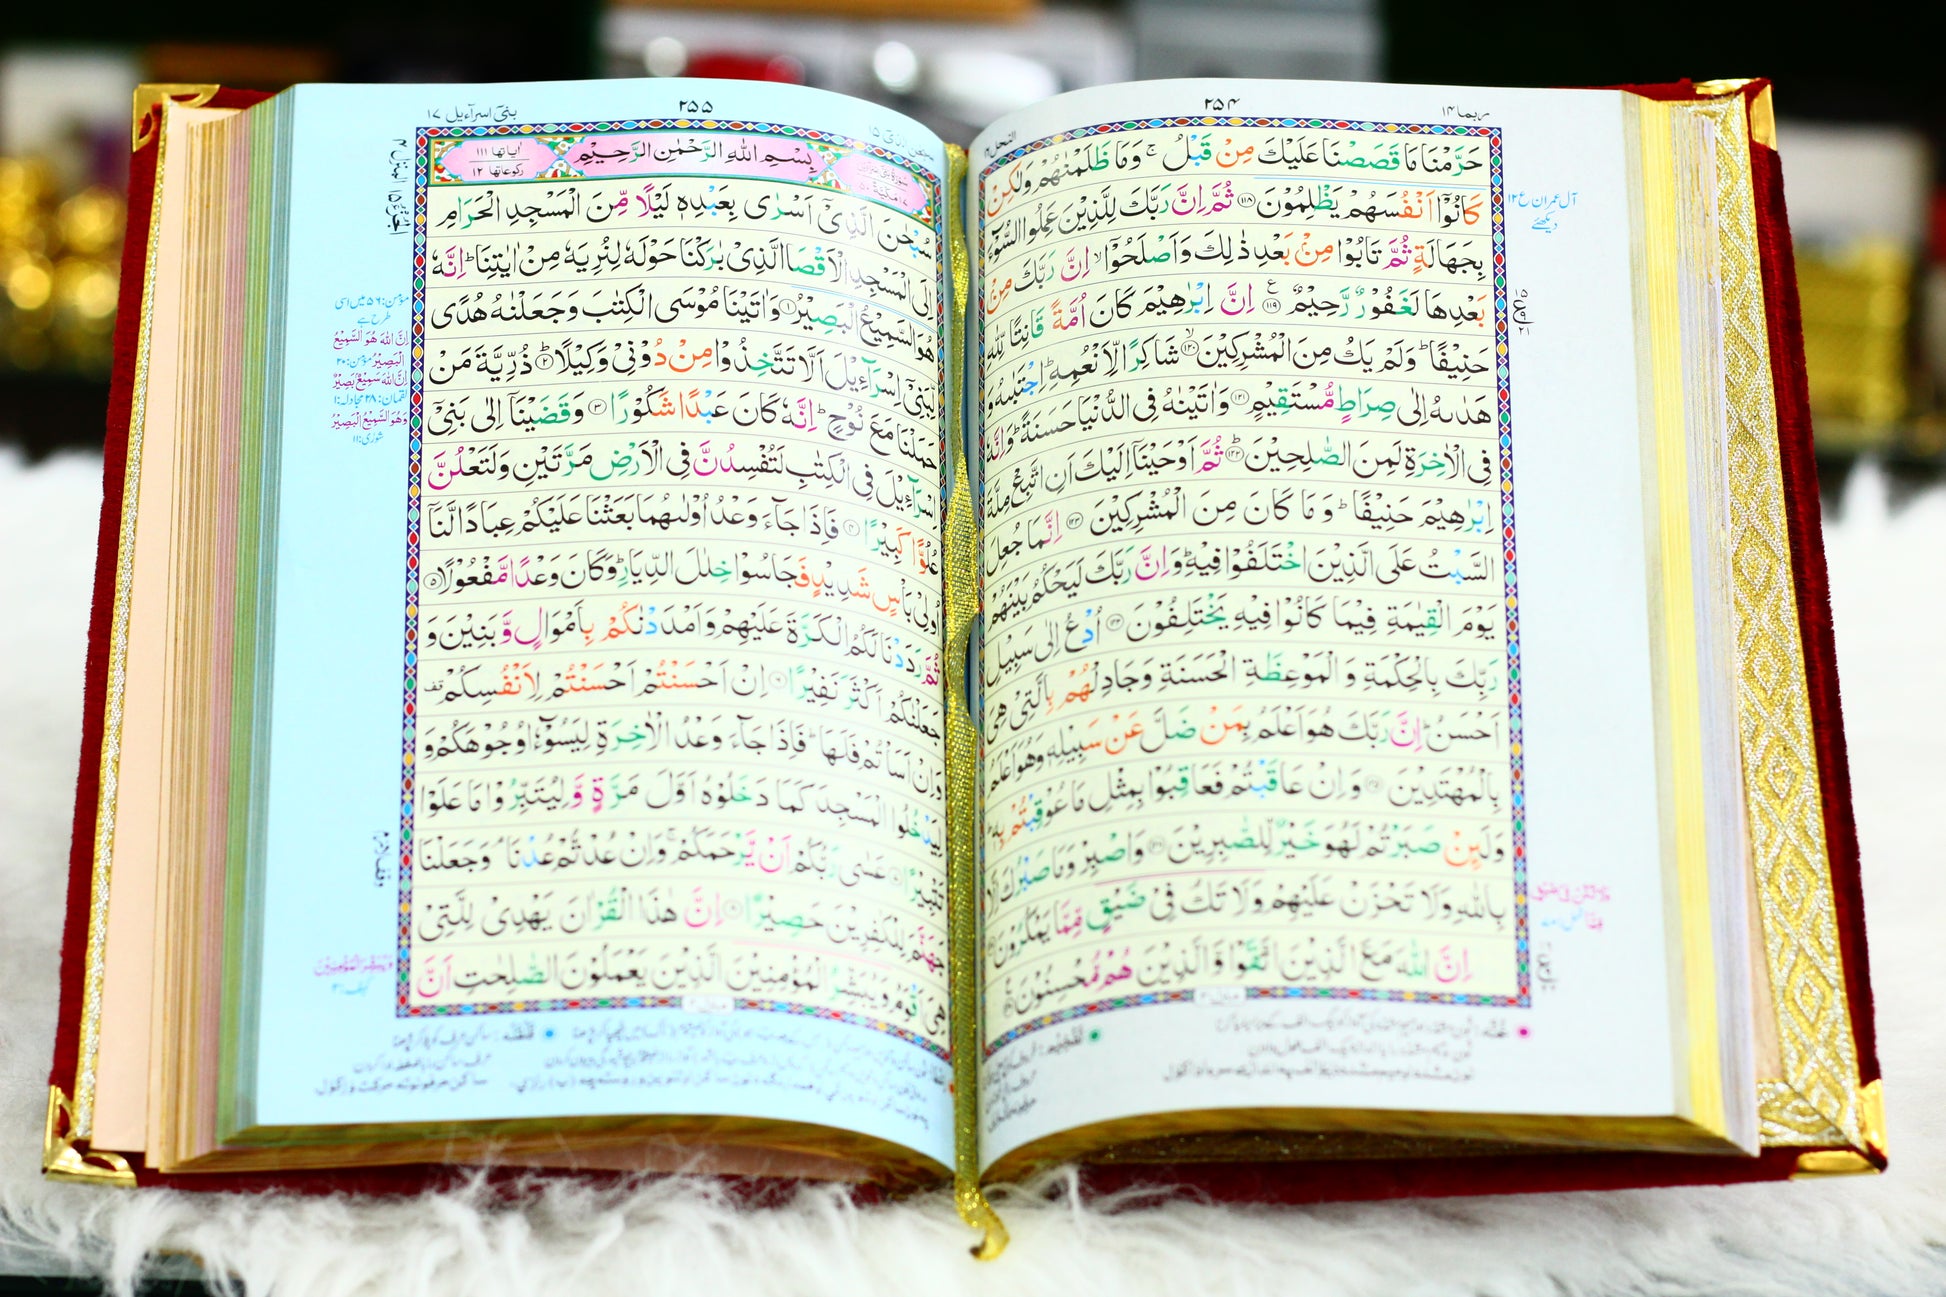 ربما ۱۴
۲۵۴
حَرَّمْنَا مَا قَصَصْنَا عَلَيْكَ مِنْ قَبْلُ ۚ وَمَا ظَلَمْنٰهُمْ وَلٰكِنْ
كَانُوْۤا اَنْفُسَهُمْ يَظْلِمُوْنَ ﴿۱۱۸﴾ ثُمَّ اِنَّ رَبَّكَ لِلَّذِيْنَ عَمِلُوا السُّوْٓءَ
بِجَهَالَةٍ ثُمَّ تَابُوْا مِنْۢ بَعْدِ ذٰلِكَ وَاَصْلَحُوْۤا ۙ اِنَّ رَبَّكَ مِنْۢ
بَعْدِهَا لَغَفُوْرٌ رَّحِيْمٌ ﴿۱۱۹﴾ اِنَّ اِبْرٰهِيْمَ كَانَ اُمَّةً قَانِتًا لِّلّٰهِ
حَنِيْفًا ؕ وَلَمْ يَكُ مِنَ الْمُشْرِكِيْنَ ﴿۱۲۰﴾ شَاكِرًا لِّاَنْعُمِهٖ ؕ اِجْتَبٰىهُ وَ
هَدٰىهُ اِلٰى صِرَاطٍ مُّسْتَقِيْمٍ ﴿۱۲۱﴾ وَاٰتَيْنٰهُ فِى الدُّنْيَا حَسَنَةً ؕ وَاِنَّهٗ
فِى الْاٰخِرَةِ لَمِنَ الصّٰلِحِيْنَ ﴿۱۲۲﴾ ثُمَّ اَوْحَيْنَاۤ اِلَيْكَ اَنِ اتَّبِعْ مِلَّةَ
اِبْرٰهِيْمَ حَنِيْفًا ؕ وَمَا كَانَ مِنَ الْمُشْرِكِيْنَ ﴿۱۲۳﴾ اِنَّمَا جُعِلَ
السَّبْتُ عَلَى الَّذِيْنَ اخْتَلَفُوْا فِيْهِ ؕ وَاِنَّ رَبَّكَ لَيَحْكُمُ بَيْنَهُمْ
يَوْمَ الْقِيٰمَةِ فِيْمَا كَانُوْا فِيْهِ يَخْتَلِفُوْنَ ﴿۱۲۴﴾ اُدْعُ اِلٰى سَبِيْلِ
رَبِّكَ بِالْحِكْمَةِ وَالْمَوْعِظَةِ الْحَسَنَةِ وَجَادِلْهُمْ بِالَّتِىْ هِىَ
اَحْسَنُ ؕ اِنَّ رَبَّكَ هُوَ اَعْلَمُ بِمَنْ ضَلَّ عَنْ سَبِيْلِهٖ وَهُوَ اَعْلَمُ
بِالْمُهْتَدِيْنَ ﴿۱۲۵﴾ وَاِنْ عَاقَبْتُمْ فَعَاقِبُوْا بِمِثْلِ مَا عُوْقِبْتُمْ بِهٖ ؕ
وَلَئِنْ صَبَرْتُمْ لَهُوَ خَيْرٌ لِّلصّٰبِرِيْنَ ﴿۱۲۶﴾ وَاصْبِرْ وَمَا صَبْرُكَ اِلَّا
بِاللّٰهِ وَلَا تَحْزَنْ عَلَيْهِمْ وَلَا تَكُ فِىْ ضَيْقٍ مِّمَّا يَمْكُرُوْنَ ﴿۱۲۷﴾
اِنَّ اللّٰهَ مَعَ الَّذِيْنَ اتَّقَوْا وَّالَّذِيْنَ هُمْ مُّحْسِنُوْنَ ﴿۱۲۸﴾
آل عمران ع ۱۲
دیکھئے
۲۵۵
بنیٓ اسرآءیل ۱۷
بِسْمِ اللّٰهِ الرَّحْمٰنِ الرَّحِيْمِ
اٰیاتها ۱۱۱
رکوعاتها ۱۲
سُبْحٰنَ الَّذِىْۤ اَسْرٰى بِعَبْدِهٖ لَيْلًا مِّنَ الْمَسْجِدِ الْحَرَامِ
اِلَى الْمَسْجِدِ الْاَقْصَا الَّذِىْ بٰرَكْنَا حَوْلَهٗ لِنُرِيَهٗ مِنْ اٰيٰتِنَا ؕ اِنَّهٗ
هُوَ السَّمِيْعُ الْبَصِيْرُ ﴿۱﴾ وَاٰتَيْنَا مُوْسَى الْكِتٰبَ وَجَعَلْنٰهُ هُدًى
لِّبَنِىْۤ اِسْرَآءِيْلَ اَلَّا تَتَّخِذُوْا مِنْ دُوْنِىْ وَكِيْلًا ﴿۲﴾ ذُرِّيَّةَ مَنْ
حَمَلْنَا مَعَ نُوْحٍ ؕ اِنَّهٗ كَانَ عَبْدًا شَكُوْرًا ﴿۳﴾ وَقَضَيْنَاۤ اِلٰى بَنِىْۤ
اِسْرَآءِيْلَ فِى الْكِتٰبِ لَتُفْسِدُنَّ فِى الْاَرْضِ مَرَّتَيْنِ وَلَتَعْلُنَّ
عُلُوًّا كَبِيْرًا ﴿۴﴾ فَاِذَا جَآءَ وَعْدُ اُوْلٰىهُمَا بَعَثْنَا عَلَيْكُمْ عِبَادًا لَّنَاۤ
اُولِىْ بَاْسٍ شَدِيْدٍ فَجَاسُوْا خِلٰلَ الدِّيَارِ ؕ وَكَانَ وَعْدًا مَّفْعُوْلًا ﴿۵﴾
ثُمَّ رَدَدْنَا لَكُمُ الْكَرَّةَ عَلَيْهِمْ وَاَمْدَدْنٰكُمْ بِاَمْوَالٍ وَّبَنِيْنَ وَ
جَعَلْنٰكُمْ اَكْثَرَ نَفِيْرًا ﴿۶﴾ اِنْ اَحْسَنْتُمْ اَحْسَنْتُمْ لِاَنْفُسِكُمْ قف
وَاِنْ اَسَاْتُمْ فَلَهَا ؕ فَاِذَا جَآءَ وَعْدُ الْاٰخِرَةِ لِيَسُوْٓءٗا وُجُوْهَكُمْ وَ
لِيَدْخُلُوا الْمَسْجِدَ كَمَا دَخَلُوْهُ اَوَّلَ مَرَّةٍ وَّلِيُتَبِّرُوْا مَا عَلَوْا
تَتْبِيْرًا ﴿۷﴾ عَسٰى رَبُّكُمْ اَنْ يَّرْحَمَكُمْ ۚ وَاِنْ عُدْتُّمْ عُدْنَا ۘ وَجَعَلْنَا
جَهَنَّمَ لِلْكٰفِرِيْنَ حَصِيْرًا ﴿۸﴾ اِنَّ هٰذَا الْقُرْاٰنَ يَهْدِىْ لِلَّتِىْ
هِىَ اَقْوَمُ وَيُبَشِّرُ الْمُؤْمِنِيْنَ الَّذِيْنَ يَعْمَلُوْنَ الصّٰلِحٰتِ اَنَّ
مؤمن: ۵۶ میں اسی
طرح ہے
اِنَّ اللّٰهَ هُوَ السَّمِيْعُ
الْبَصِيْرُ مؤمن: ۲۰
اِنَّ اللّٰهَ سَمِيْعٌۢ بَصِيْرٌ
لقمان: ۲۸ مجادلہ: ۱
وَهُوَ السَّمِيْعُ الْبَصِيْرُ
شوریٰ: ۱۱